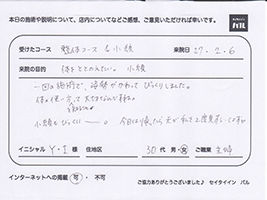 本日の施術や説明について、店内についてなどご感想、ご意見いただければ幸いです。
パル
受けたコース 整体コース & 小顔 来院日 27.2.6
来院の目的 体をととのえたい。小顔
一回の施術で、姿勢がかわって びっくりしました。
体の使い方って大切なんだ
小顔もびっくり 今日は帰ったら夫が
イニシャル Y・I 様 住地区 30代 男・女 ご職業 主婦
インターネットへの掲載 可・不可
ご協力ありがとうございました♪ セイタイイン パル